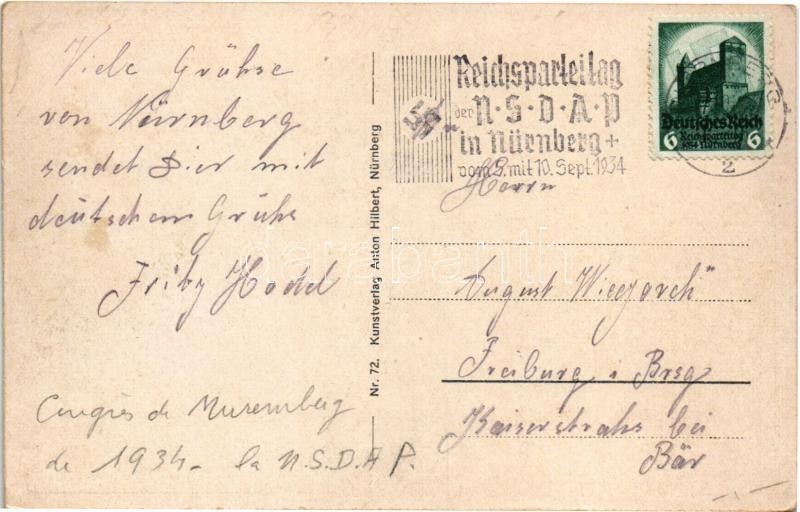 Viele Grühse
von Nürnberg
sendet Dir mit
deutschem Gruhs
Fritz Hodel
Congrès de Nuremberg
de 1934 - la N.S.D.A.P.
Nr. 72. Kunstverlag Anton Hilbert, Nürnberg
Reichsparteitag
der N·S·D·A·P
in Nürnberg +
vom 5. mit 10. Sept. 1934
Deutsches Reich
6 Reichsparteitag 6
1934 Nürnberg
2
Herrn
August
Freiburg i Brsg
Kaiserstrahs bei
Bär
darabanth